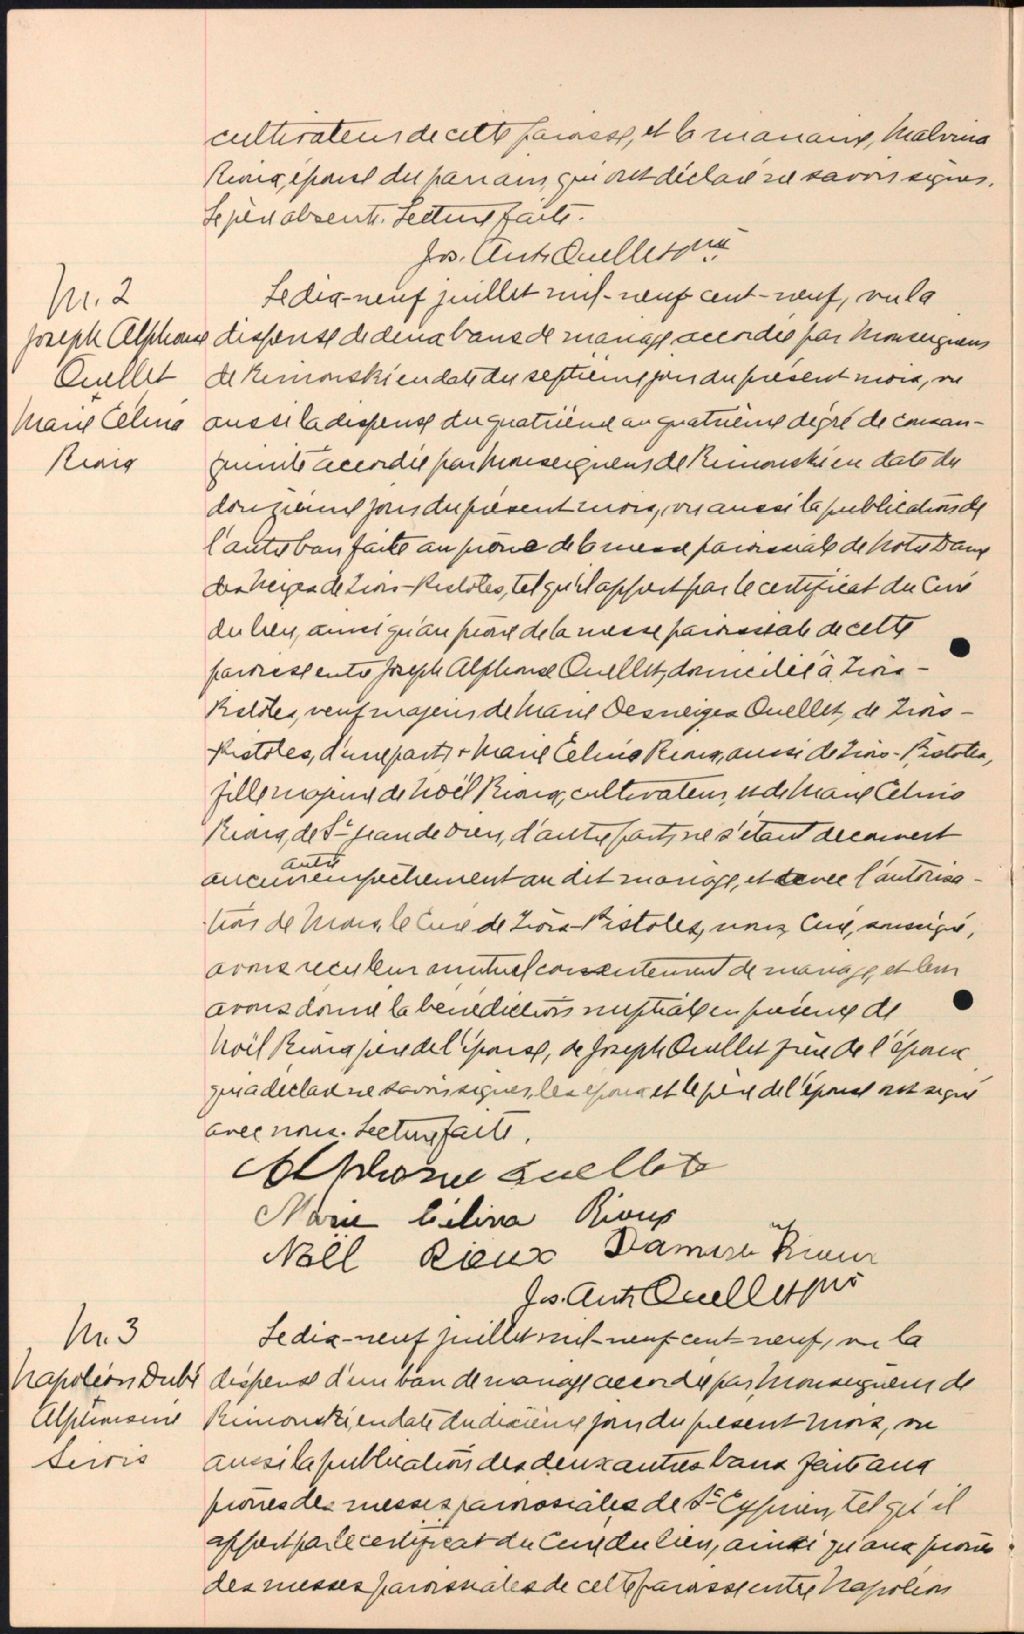 cultivateur de cette paroisse, et la marraine, Malvina
Rioux, épouse du parrain, qui ont déclaré ne savoir signer.
Le père absent. Lecture faite.
Jos. Ant. Ouellet ptre
M. 2
Joseph Alphonse
Ouellet
+
Marie Célina
Rioux
Le dix-neuf juillet mil-neuf-cent-neuf, vu la
dispense de deux bans de mariage accordée par Monseigneur
de Rimouski en date du septième jour du présent mois, vu
aussi la dispense du quatrième au quatrième dégré de consan-
guinité accordée par Monseigneur de Rimouski en date du
douzième jour du présent mois, vu aussi la publication de
l'autre ban faite au prône de la messe paroissiale de Notre Dame
des Neiges de Trois-Pistoles, tel qu'il appert par le certificat du Curé
du lieu, ainsi qu'au prône de la messe paroissiale de cette
paroisse entre Joseph Alphonse Ouellet, domicilié à Trois-
Pistoles, veuf majeur de Marie Desneiges Ouellet, de Trois-
Pistoles, d'une part, + Marie Célina Rioux, aussi de Trois-Pistoles,
fille majeure de Noël Rioux, cultivateur, et de Marie Célina
Rioux, de St Jean de Dieu, d'autre part, ne s'étant découvert
aucun autre empêchement au dit mariage, et avec l'autorisa-
tion de Mons. le Curé de Trois-Pistoles, nous, Curé, soussigné,
avons reçu leur mutuel consentement de mariage, et leur
avons donné la bénédiction nuptiale en présence de
Noël Rioux père de l'épouse, de Joseph Ouellet frère de l'époux
qui a déclaré ne savoir signer, les époux et le père de l'épouse ont signé
avec nous. Lecture faite.
Alphonse Ouellete
Marie Célina Rioux
Noël Rieux Damise Rioux
Jos. Ant. Ouellet ptre
M. 3
Napoléon Dubé
Alphonsine
Sirois
Le dix-neuf juillet mil-neuf-cent-neuf, vu la
dispense d'un ban de mariage accordée par Monseigneur de
Rimouski, en date du dixième jour du présent mois, vu
aussi la publication des deux autres bans faite aux
prônes des messes paroissiales de St Cyprien, tel qu'il
appert par le certificat du Curé du lieu, ainsi qu'aux prônes
des messes paroissiales de cette paroisse entre Napoléon